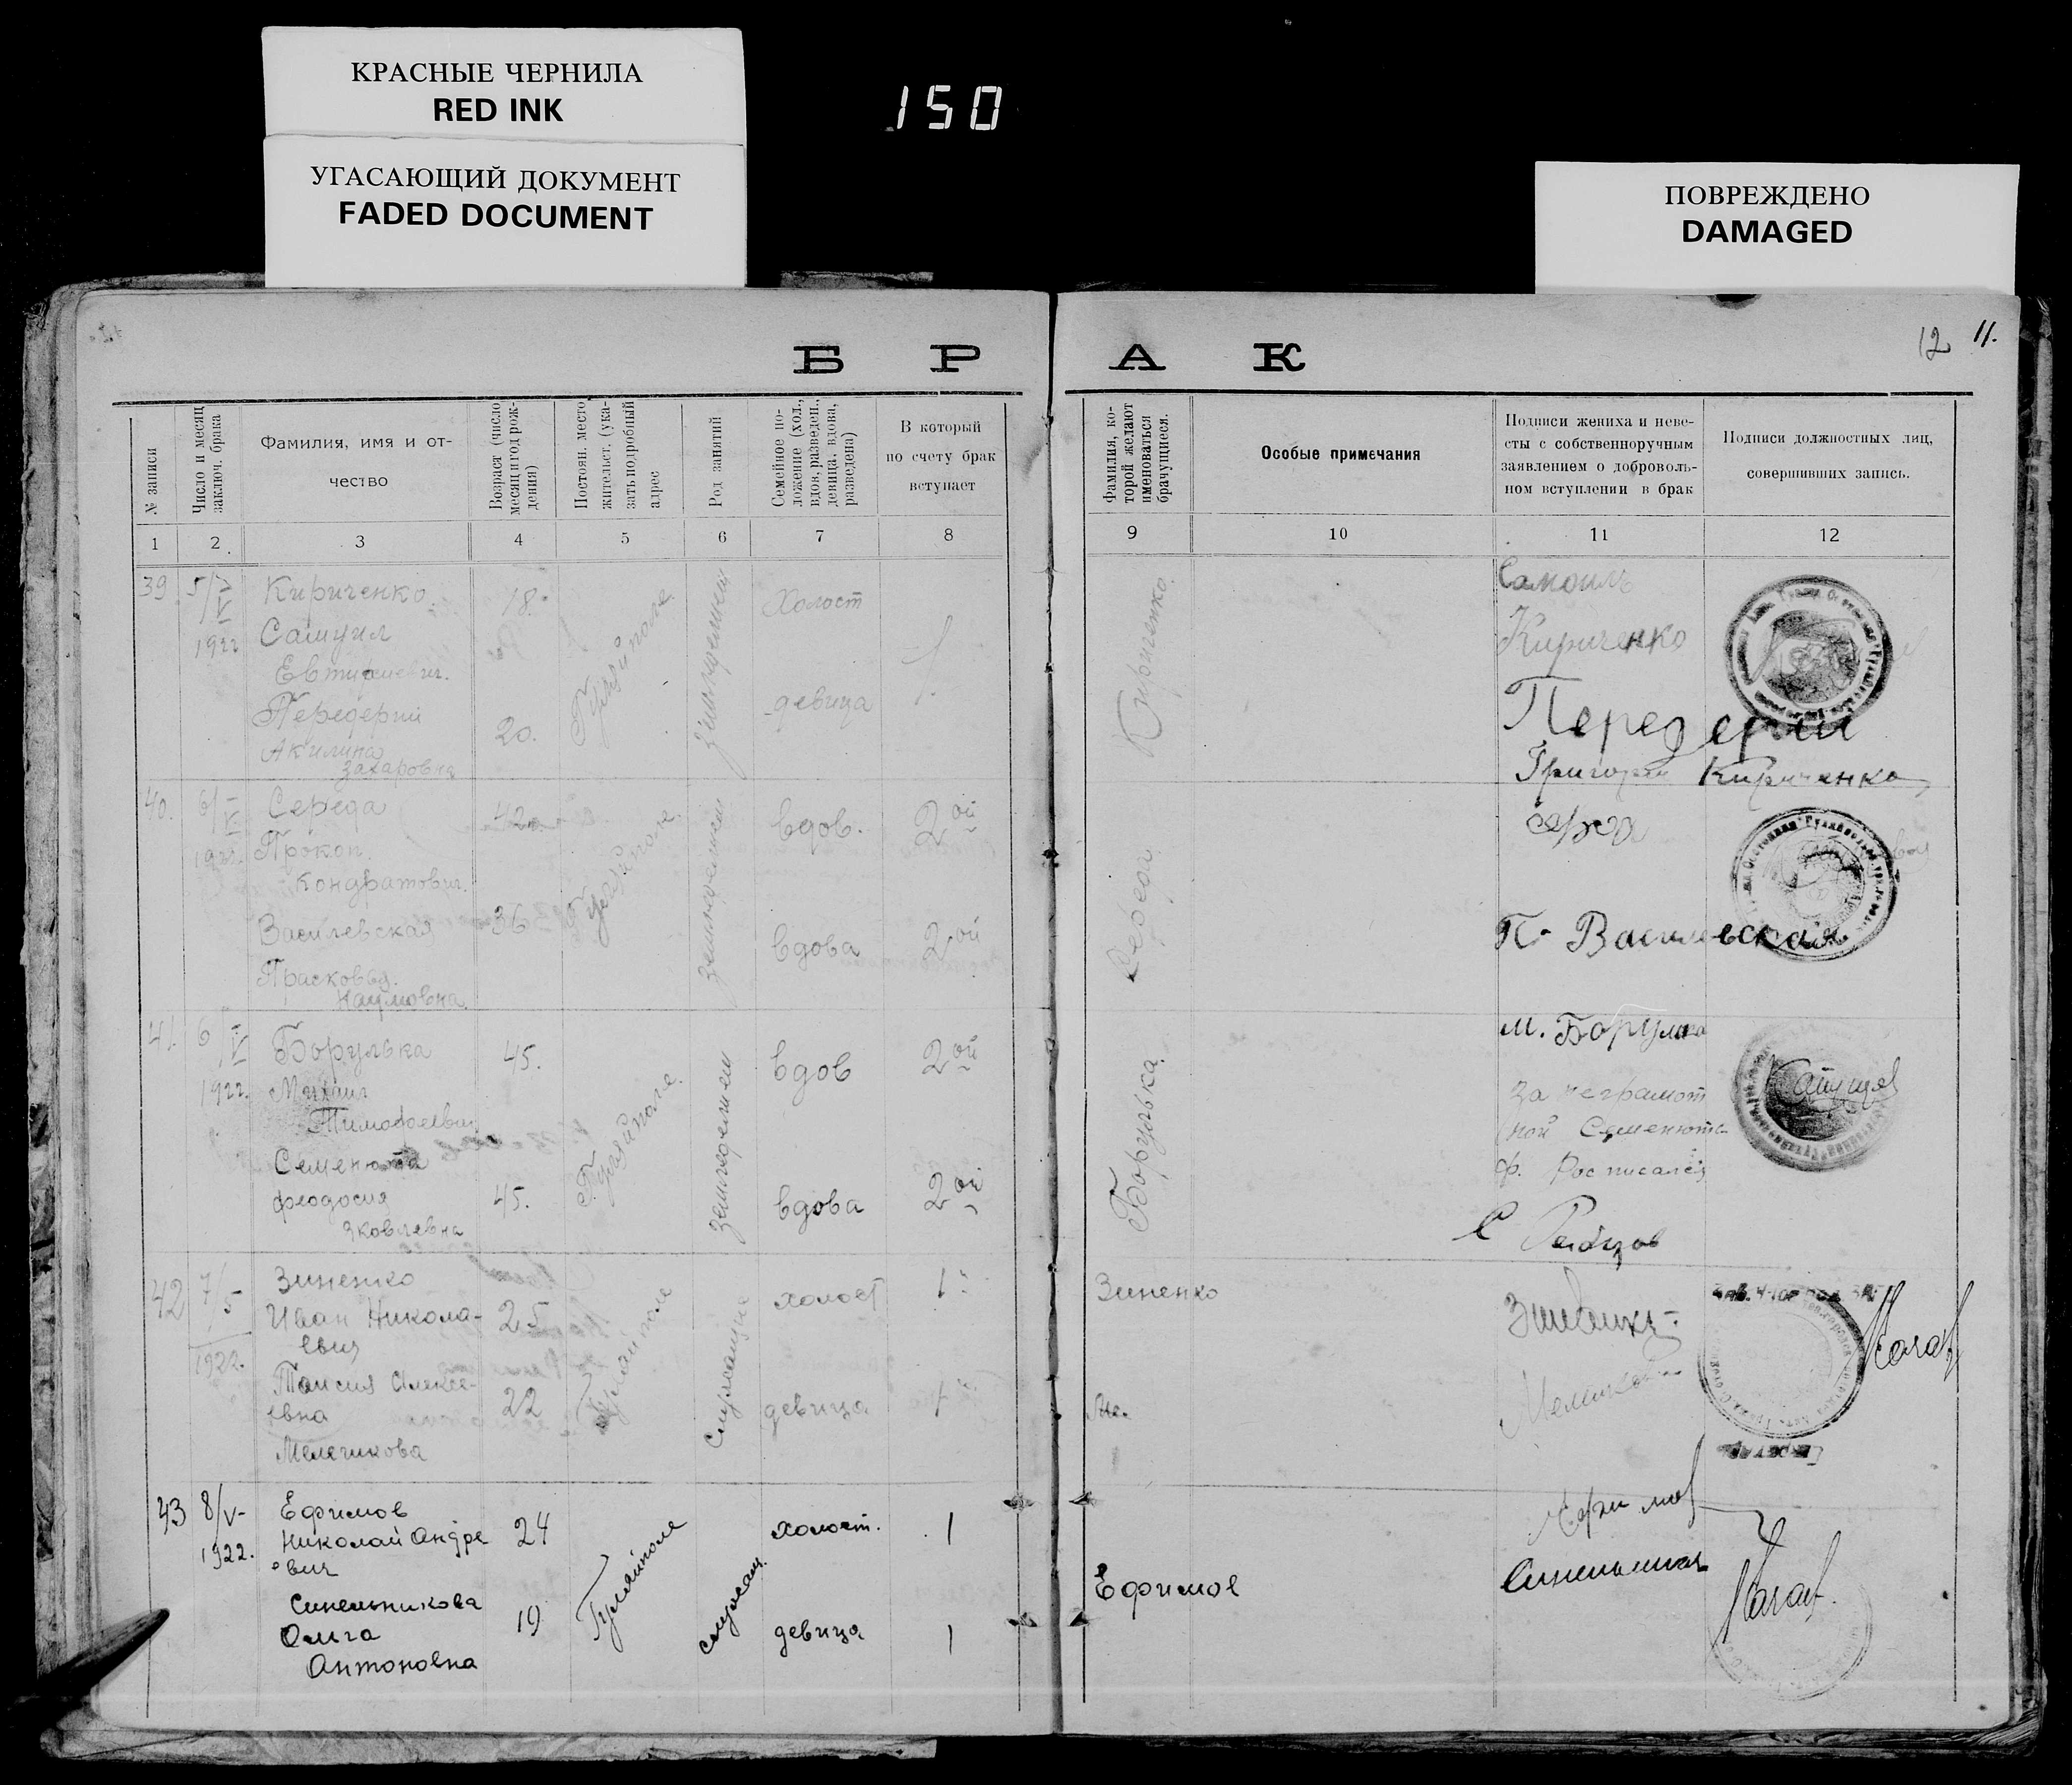 КРАСНЫЕ ЧЕРНИЛА
RED INK
УГАСАЮЩИЙ ДОКУМЕНТ
FADED DOCUMENT
150
ПОВРЕЖДЕНО
DAMAGED
12 11.
Б Р А К
№ записи
Число и месяц
заключ. брака
Фамилия, имя и от-
чество
Возраст (число
месяц и год рож-
дения)
Постоян. место
жительст. (ука-
зать подробный
адрес
Род занятий
Семейное по-
ложение (хол.,
вдов, разведен.,
девица, вдова,
разведена)
В который
по счету брак
вступает
Фамилия, ко-
торой желают
именоваться
брачущиеся.
Особые примечания
Подписи жениха и неве-
сты с собственноручным
заявлением о доброволь-
ном вступлении в брак
Подписи должностных лиц,
совершивших запись.
1 2 3 4 5 6 7 8 9 10 11 12
39 5/V
1922
Кириченко
Самуил
Передерий
Акилина
Захаровна
18.
20.
Гуляйполе
Холост
девица
1
Кириченко
Самоилъ
Кириченко
Передерий
Григорий Кириченко
40. 6/V
1922.
Середа
Прокоп
Кондратович.
Василевская
Прасковья
Наумовна
42
36
Гуляйполе
вдов.
вдова
2ой
2ой
П. Василевская
41. 6/V
1922.
Борулька
Михаил
Тимофеевич
Семенюта
Феодосия
Яковлевна
45.
45.
Гуляйполе.
вдов
вдова
2ой
2ой
Борулька
м. Борулка
За неграмот
ной Семенюта
Ф. Росписался
42 7/5
1922.
Зиненко
Иван Никола-
евич
Таисия Алексе-
евна
Мелешкова
25
22
Гуляйполе
Служащие
холост
девица
1
1
Зиненко
43 8/V-
1922.
Ефимов
Николай Андре
евич
Синельникова
Ольга
Антоновна
24
19
Гуляйполе
служащ.
холост.
девица
1
1
Ефимов